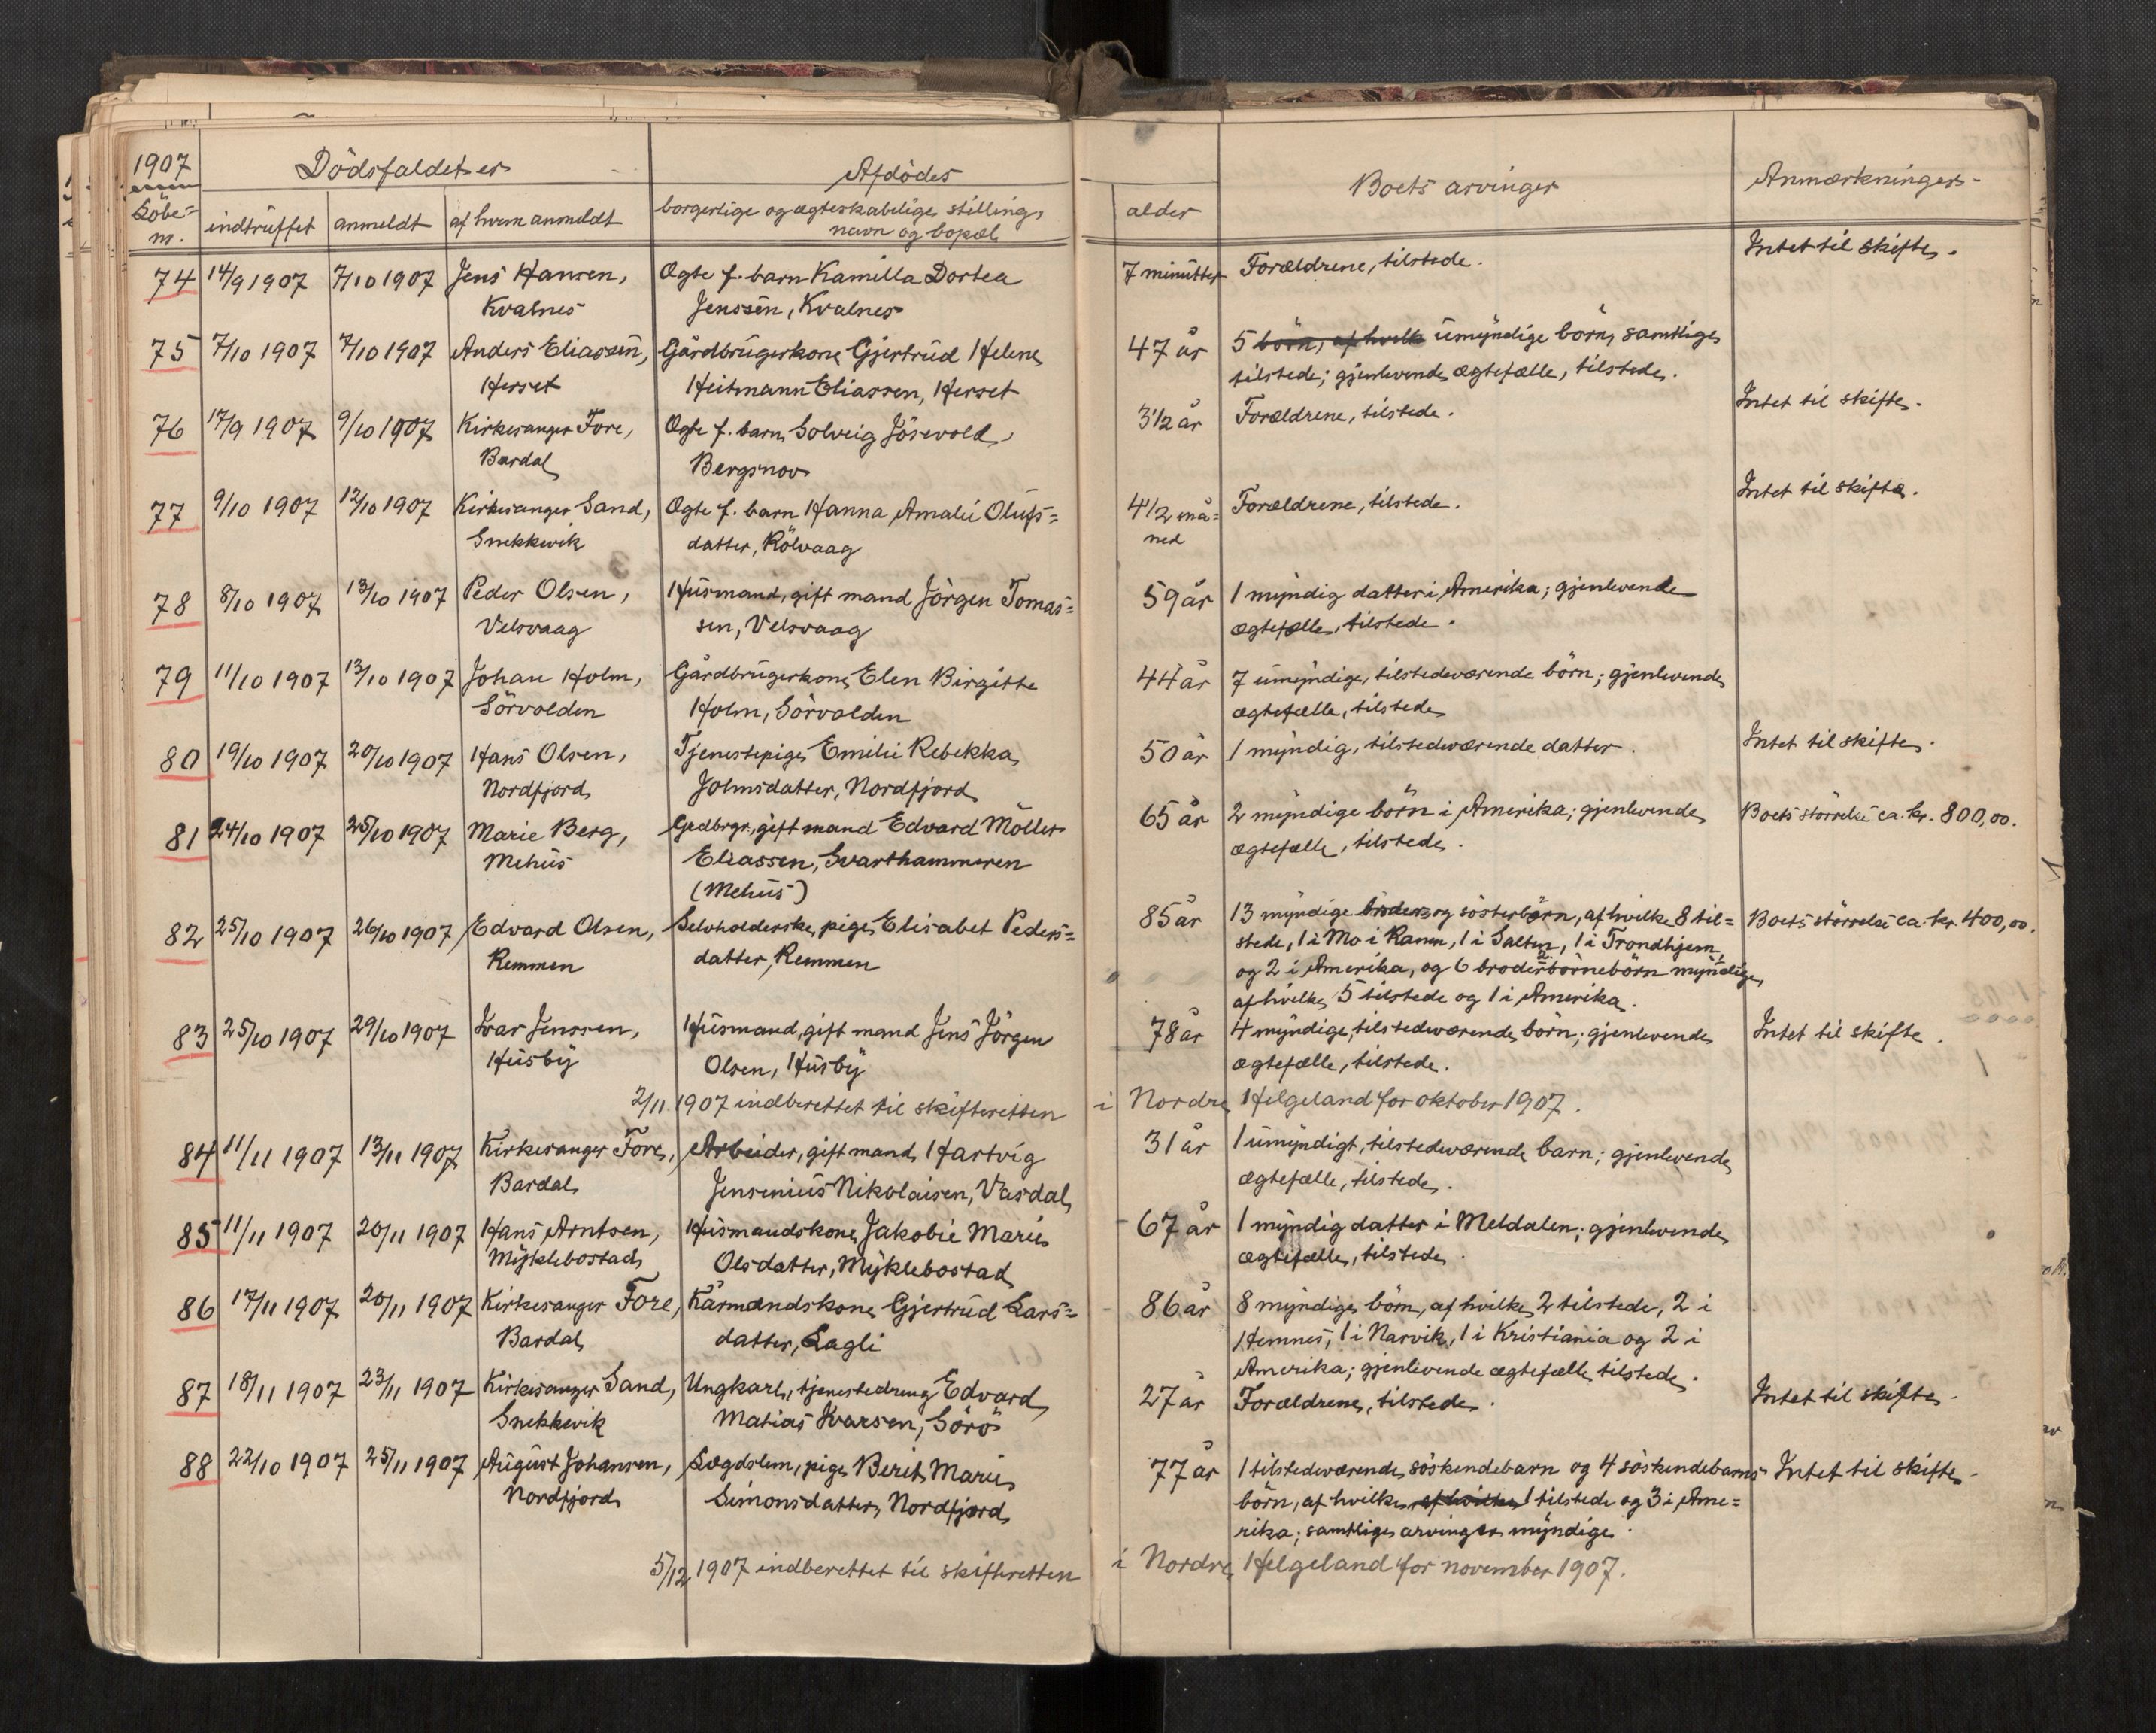 1907
Dödsfaldet er
Afdödes
Boets arvinger
Anmærkninger
Löbe-
nr.
indtruffet
anmeldt
af hvem anmeldt
borgerlige og ægteskabelige stilling,
navn og bopæl
alder
74 14/9 1907 7/10 1907 Jens Hansen, Ægte f. barn Kamilla Dortea 7 minutter Forældrene, tilstede. Intet til skifte.
Kvalnes Jenssen, Kvalnes
75 7/10 1907 7/10 1907 Anders Eliassen, Gårdbrugerkone Gjertrud Helene 47 år 5 börn, af hvilk umyndige börn, samtlige
Herset Heitmann Eliassen, Herset tilstede; gjenlevende ægtefælle, tilstede.
76 17/9 1907 9/10 1907 Kirkesanger Fore, Ægte f. barn Solveig Jösevold, 3 1/2 år Forældrene, tilstede. Intet til skifte.
Bardal Bergsnov
77 9/10 1907 12/10 1907 Kirkesanger Sand, Ægte f. barn Hanna Amalie Olufs= 4 1/2 må= Forældrene, tilstede. Intet til skifte.
Snekkevik datter, Kölvaag ned
78 8/10 1907 13/10 1907 Peder Olsen, Husmand, gift mand Jörgen Tomas= 59 år 1 myndig datter i Amerika; gjenlevende
Velsvaag sen, Velsvaag ægtefælle, tilstede.
79 11/10 1907 13/10 1907 Johan Holm, Gårdbrugerkone Elen Birgitte 44 år 7 umyndige, tilstedeværende börn; gjenlevende
Sörvolden Holm, Sörvolden ægtefælle, tilstede
80 19/10 1907 20/10 1907 Hans Olsen, Tjenestepige Emilie Rebekka 50 år 1 myndig, tilstedeværende datter. Intet til skifte.
Nordfjord Johnsdatter, Nordfjord
81 24/10 1907 25/10 1907 Marie Berg, Grdbrgr., gift mand Edvard Möller 65 år 2 myndige börn i Amerika; gjenlevende Boets störrelse ca. kr. 800,00.
Mehus Eliassen, Svarthammeren ægtefælle, tilstede.
(Mehus)
82 25/10 1907 26/10 1907 Edvard Olsen, Selvholderske, pige Elisabet Peders= 85 år 13 myndige broder og sösterbörn, af hvilke 8 til= Boets störrelse ca. kr. 400,00.
Remmen datter, Remmen stede, 1 i Mo i Ranen, 1 i Salten, 1 i Trondhjem,
og 2 i Amerika, og 6 broderbörnebörn myndige,
af hvilke 5 tilstede og 1 i Amerika.
83 25/10 1907 29/10 1907 Ivar Jenssen, Husmand, gift mand Jens Jörgen 78 år 4 myndige, tilstedeværende börn; gjenlevende Intet til skifte.
Husby Olsen, Husby ægtefælle, tilstede.
2/11 1907 indberettet til skifteretten i Nordre Helgeland for oktober 1907.
84 11/11 1907 13/11 1907 Kirkesanger Fore, Arbeider, gift mand Hartvig 31 år 1 umyndigt, tilstedeværende barn; gjenlevende
Bardal Jensenius Nikolaisen, Vasdal ægtefælle, tilstede.
85 11/11 1907 20/11 1907 Hans Arntsen, Husmandskone Jakobie Marie 67 år 1 myndig datter i Meldalen; gjenlevende
Myklebostad Olsdatter, Myklebostad ægtefælle, tilstede.
86 17/11 1907 20/11 1907 Kirkesanger Fore, Kårmandskone Gjertrud Lars= 86 år 8 myndige börn, af hvilke 2 tilstede, 2 i
Bardal datter, Lagli Hemnes, 1 i Narvik, 1 i Kristiania og 2 i
Amerika; gjenlevende ægtefælle tilstede.
87 18/11 1907 23/11 1907 Kirkesanger Sand, Ungkarl, tjenestedreng Edvard 27 år Forældrene, tilstede. Intet til skifte.
Snekkevik Matias Ivarsen, Sörö
88 22/10 1907 25/11 1907 August Johansen, Lægdslem, pige Berit Marie 77 år 1 tilstedeværende söskendebarn og 4 söskendebarns Intet til skifte.
Nordfjord Simonsdatter, Nordfjord börn, af hvilke af hvilke 1 tilstede og 3 i Ame=
rika; samtlige arvinger myndige.
5/12 1907 indberettet til skifteretten i Nordre Helgeland for november 1907.